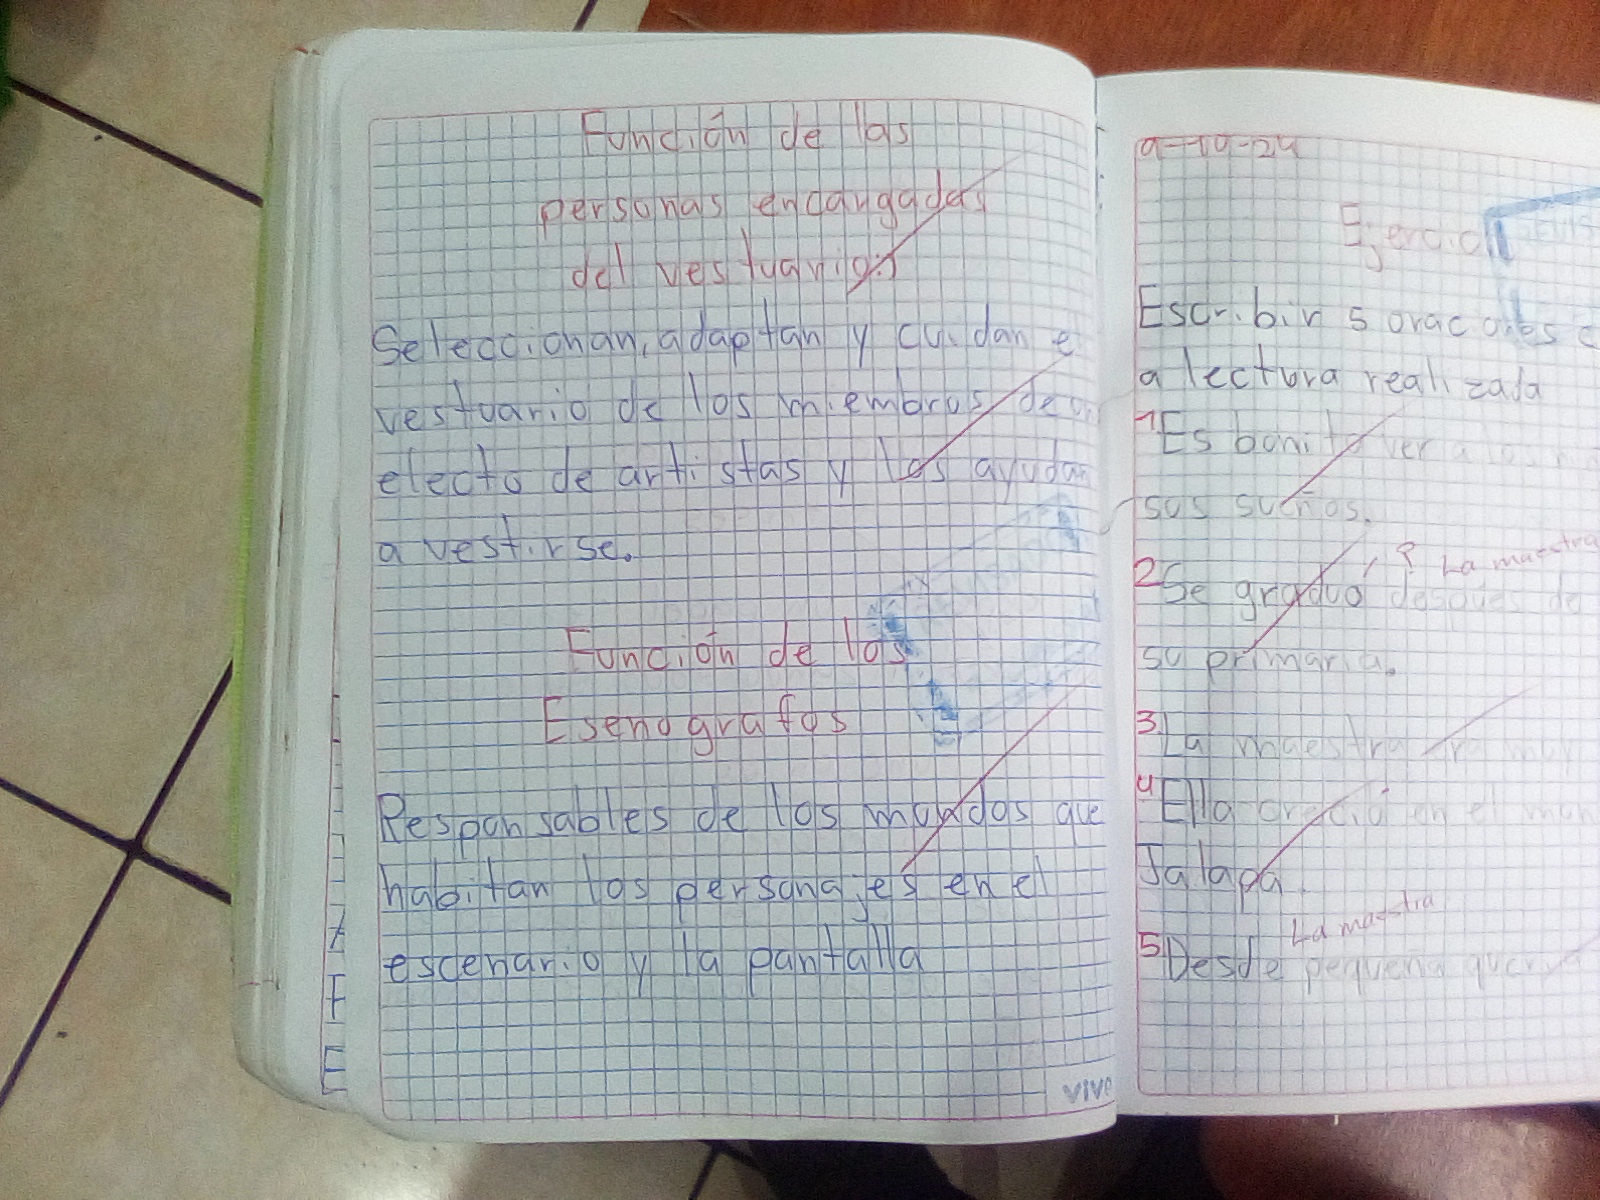 Función de las
personas encargadas
del vestuario:
Seleccionan, adaptan y cuidan e
vestuario de los miembros de
electo de artistas y los ayudan
a vestirse.
Función de los
Esenografos
Responsables de los mundos que
habitan los personajes en el
escenario y la pantalla
vivo
9-10-24
Ejercici
Escribir 5 orac ones
a lectura realizada
1 Es bonito ver a
sus sueños.
? La maestra
2 Se graduó después de
su primaria.
3. La maestra era muy
4 Ella creció en el
Jalapa.
La maestra
5. Desde pequeña quería